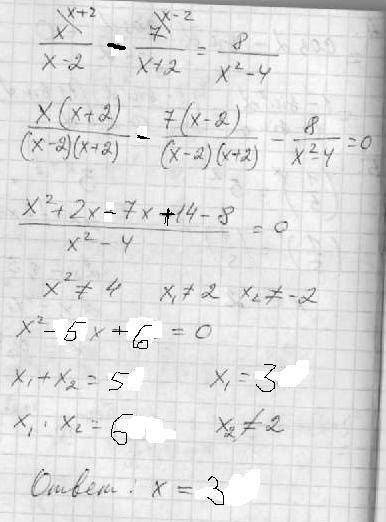 x^{x+2}/(x-2) - 7^{x-2}/(x+2) = 8/(x²-4)
x(x+2)/((x-2)(x+2)) - 7(x-2)/((x-2)(x+2)) - 8/(x²-4) = 0
(x²+2x-7x+14-8)/(x²-4) = 0
x² ≠ 4 x₁ ≠ 2 x₂ ≠ -2
x² - 5x + 6 = 0
x₁ + x₂ = 5 x₁ = 3
x₁ · x₂ = 6 x₂ ≠ 2
Ответ: x = 3